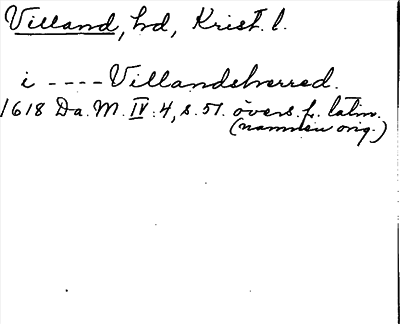 Villand, hd, Krist. l.
i ---- Villandsherred.
1618 Da. M. IV. 4, s. 57. övers. fr. latin.
(namnen orig.)